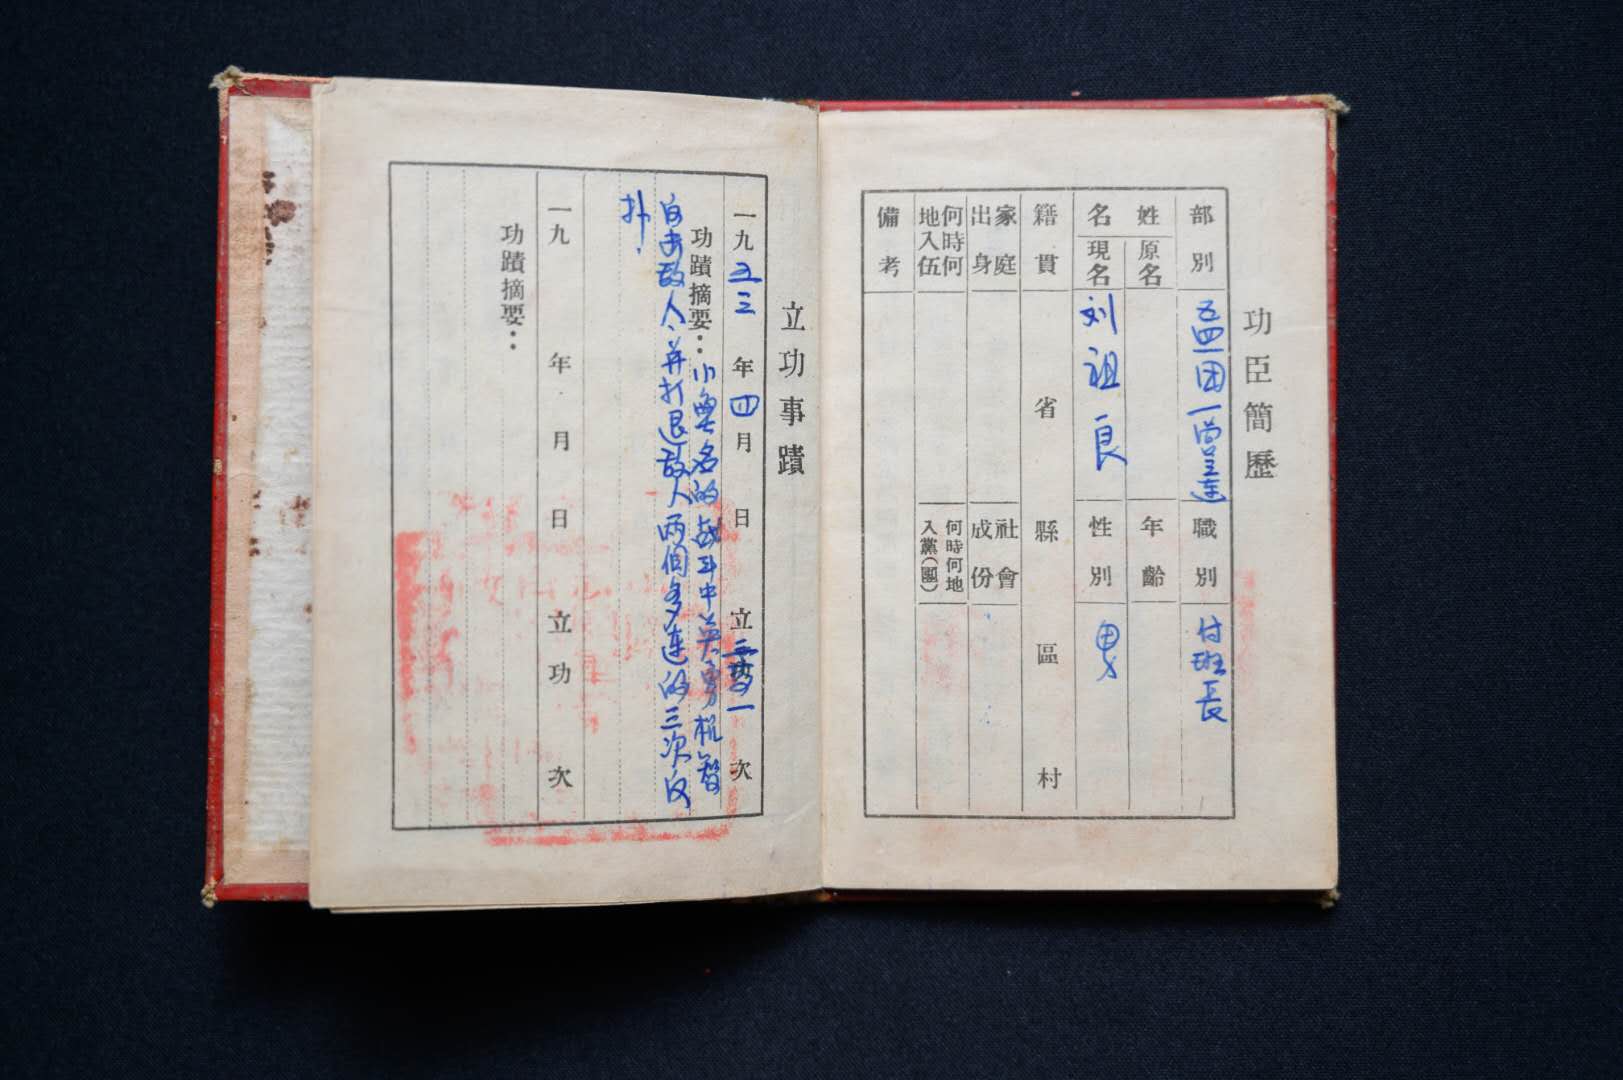 功臣簡歷
部別 五四一团一营三连 職別 付班長
姓名 原名 年齡
現名 刘祖良 性別 男
籍貫 省 縣 區 村
家庭出身 社會成份
何時何地入伍 何時何地入黨(團)
備考
立功事蹟
一九五三年四月 日 立三等功一次
功蹟摘要：小無名的战斗中英勇机智
白击敌人、并打退敌人两個多连的三次反
扑.
一九 年 月 日 立功 次
功蹟摘要：